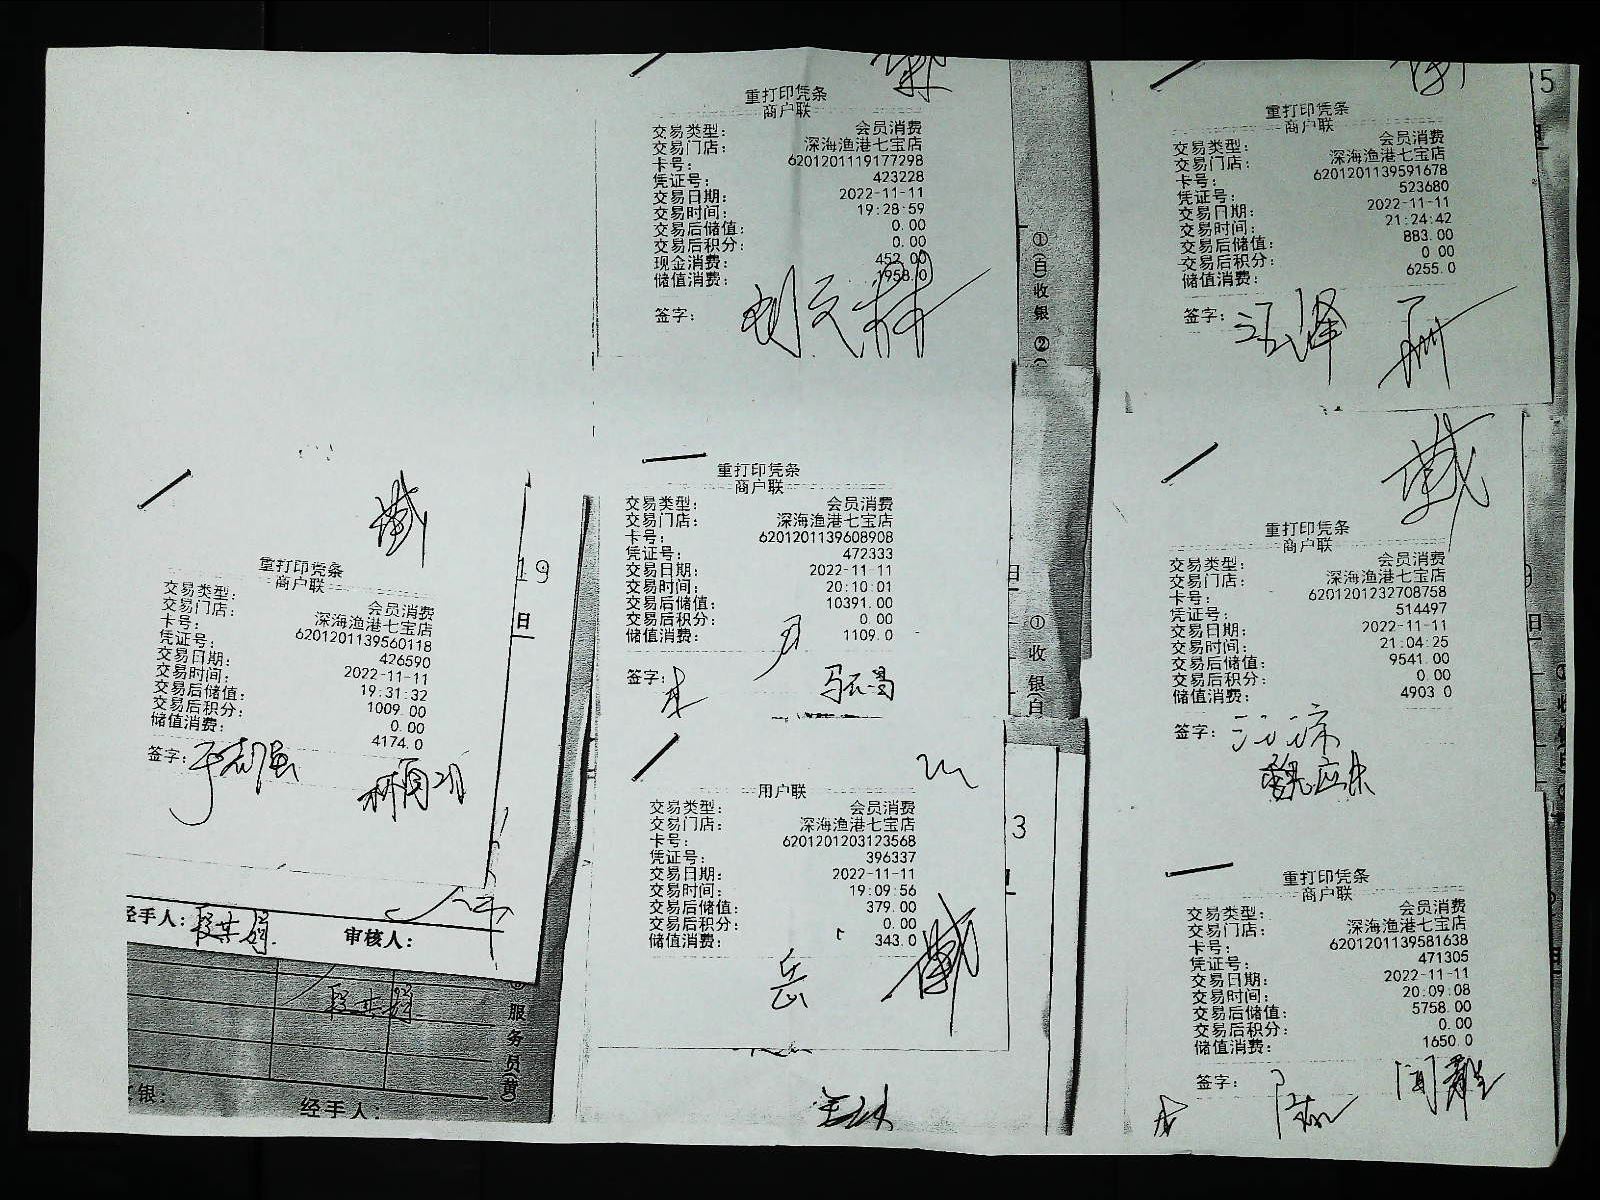 重打印凭条
商户联
交易类型： 会员消费
交易门店： 深海渔港七宝店
卡号： 6201201119177298
凭证号： 423228
交易日期： 2022-11-11
交易时间： 19:28:59
交易后储值： 0.00
交易后积分： 0.00
现金消费： 452.00
储值消费： 1958.0
签字：
重打印凭条
商户联
交易类型： 会员消费
交易门店： 深海渔港七宝店
卡号： 6201201139591678
凭证号： 523680
交易日期： 2022-11-11
交易时间： 21:24:42
交易后储值： 883.00
交易后积分： 0.00
储值消费： 6255.0
签字：
5
①(白)收银 ②(
重打印凭条
商户联
交易类型： 会员消费
交易门店： 深海渔港七宝店
卡号： 6201201139560118
凭证号： 426590
交易日期： 2022-11-11
交易时间： 19:31:32
交易后储值： 1009.00
交易后积分： 0.00
储值消费： 4174.0
签字： 于志强
19
日
经手人：
审核人：
服务员(黄)
银：
经手人：
重打印凭条
商户联
交易类型： 会员消费
交易门店： 深海渔港七宝店
卡号： 6201201139608908
凭证号： 472333
交易日期： 2022-11-11
交易时间： 20:10:01
交易后储值： 10391.00
交易后积分： 0.00
储值消费： 1109.0
签字：
日
①收银(白
重打印凭条
商户联
交易类型： 会员消费
交易门店： 深海渔港七宝店
卡号： 6201201232708758
凭证号： 514497
交易日期： 2022-11-11
交易时间： 21:04:25
交易后储值： 9541.00
交易后积分： 0.00
储值消费： 4903.0
签字：
日
用户联
交易类型： 会员消费
交易门店： 深海渔港七宝店
卡号： 6201201203123568
凭证号： 396337
交易日期： 2022-11-11
交易时间： 19:09:56
交易后储值： 379.00
交易后积分： 0.00
储值消费： 343.0
岳
3
重打印凭条
商户联
交易类型： 会员消费
交易门店： 深海渔港七宝店
卡号： 6201201139581638
凭证号： 471305
交易日期： 2022-11-11
交易时间： 20:09:08
交易后储值： 5758.00
交易后积分： 0.00
储值消费： 1650.0
签字：